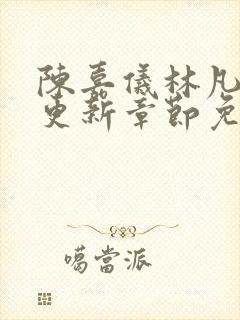 陳嘉儀林凡
更新章節免
噶當派